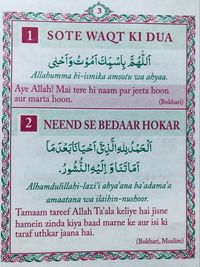 3
1 SOTE WAQT KI DUA
اَللّٰهُمَّ بِاسْمِكَ اَمُوْتُ وَاَحْيٰى
Allahumma bi-ismika amootu wa ahyaa.
Aye Allah! Mai tere hi naam par jeeta hoon
aur marta hoon.
(Bukhari)
2 NEEND SE BEDAAR HOKAR
اَلْحَمْدُ لِلّٰهِ الَّذِيْٓ اَحْيَانَا بَعْدَ مَا
اَمَاتَنَا وَاِلَيْهِ النُّشُوْرُ.
Alhamdulillahi-lazi'i ahya'ana ba'adama'a
amaatana wa ilaihin-nushoor.
Tamaam tareef Allah Ta'ala keliye hai jisne
hamein zinda kiya baad marne ke aur isi ki
taraf uthkar jaana hai.
(Bukhari, Muslim)